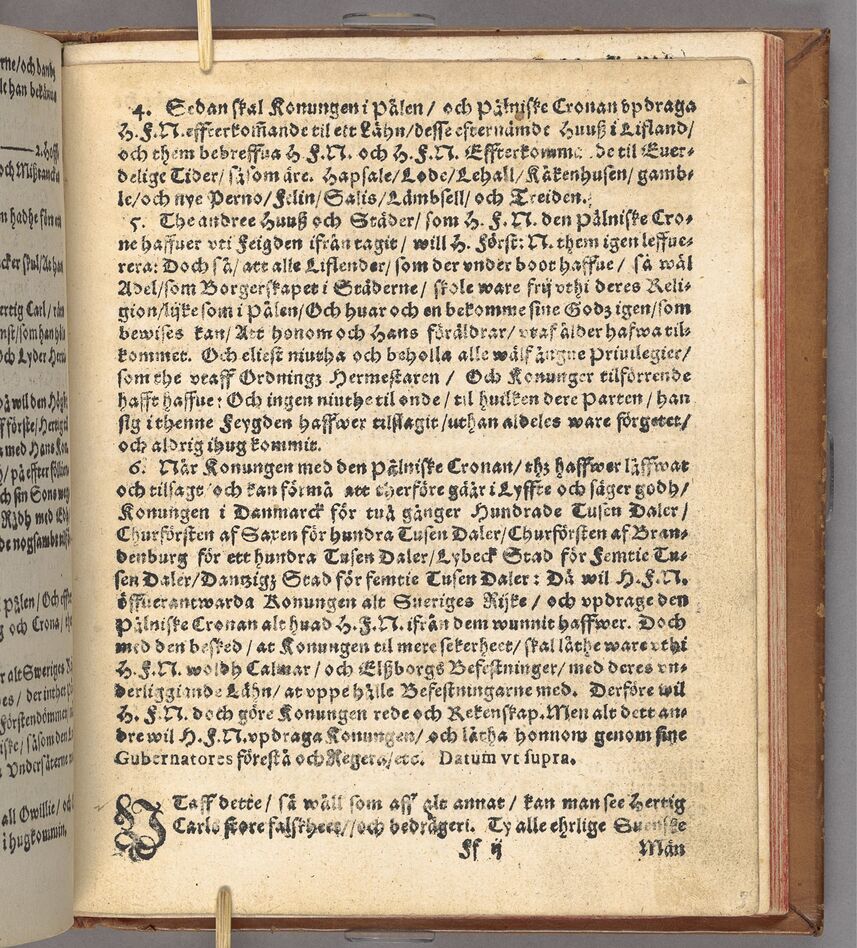 rne/och
lt han
2.
och
m hadhe
ertig Carl/
och Lyder
med Hans
ch sin Sons
Rådh med
Pålen/
och Crona/
r alt Sweriges
es/ der
Förstendömmet
all Owillie/
i hugkommin,
4. Sedan skal Konungen i Pålen/ och Pålniske Cronan vpdraga
H.F.N. effterkom̃ande til ett Lähn/desse efternämde Huuß i Lifland/
och them bebreffua H.F.N. och H.F.N. til Ewer-
delige Tider/ såsom äre. Hapsale/Lode/Lehall/Kåkenhusen/gamb-
le/och nye Perno/Felin/Salis/Lämbsell/och Treiden.
5. The andree Huuß och Städer/som H.F.N. den Pålniske Cro-
ne haffuer vti Feigden ifrån tagit/ will H. Först: N. them igen leffue-
rera: Doch så/ att alle Liflender/som der vnder boot haffue/ så wäl
Adel/som Borgerskapet i Städerne/ skole ware frij vthi deres Reli-
gion/lijke som i Pålen/Och huar och en bekomme sine Godz igen/som
bewises kan/ Att honom och Hans föräldrar/ vtaf älder hafwa til-
kommet. Och eliest niutha och beholla alle Priuilegier/
som the vtaff Ordningz Hermestaren/ Och Konunger tilförrende
hafft haffue: Och ingen niuthe til onde/ til huilken dere Parten/ han
sig i thenne Feygden haffwer tilslagit/uthan aldeles ware förgetet/
och aldrig ihug kommit.
6. När Konungen med den Pålniske Cronan/ thz haffwer läffwat
och tilsagt/och kan förmå att therföre gåår i Lyffte och säger godh/
Konungen i Danmarck för tuå gånger Hundrade Tusen Daler/
Churförsten af Saxen för hundra Tusen Daler/Churförsten af Bran-
denburg för ett hundra Tusen Daler/Lybeck Stad för Femtie Tu-
sen Daler/Dantzigz Stad för femtie Tusen Daler: Då wil H.F.N.
öffuerantwarda Konungen alt Sueriges Rijke/ och vpdrage den
Pålniske Cronan alt huad H.F.N. ifrån dem wunnit haffwer. Doch
med den besked/ at Konungen til mere sekerheet/ skal låthe ware vthi
H.F.N. woldh Calmar/ och Elßborgs Befestninger/med deres vn-
derliggiande Lähn/ at vppe hålle Befestningarne med. Derföre wil
H.F.N. doch göre Konungen rede och Rekenskap. Men alt dett an-
dre wil H.F.N. vpdraga Konungen/ och låtha honnom genom sine
Gubernatores förestå och Regera/etc. Datum vt supra.
VTaff dette/ så wäll som aff alt annat/ kan man see Hertig
Carls store falskheet//och bedrägeri. Ty alle ehrlige Suenske
Ff ij Män